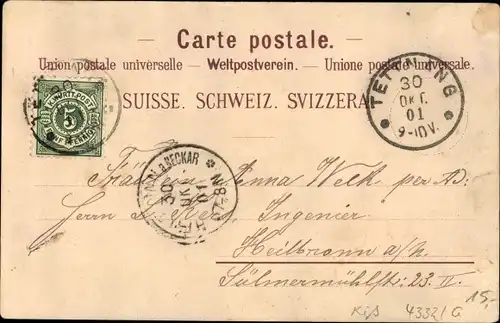 Carte postale.
Union postale universelle. — Weltpostverein. — Unione postale universale.
SUISSE. SCHWEIZ. SVIZZERA.
5
TETTNANG
30
OKT.
01
9-10V.
HEILBRONN A. NECKAR
30
OKT
01
7-8N
Fräulein Anna Welk per Ad:
Herrn D. Ingenier
Heilbronn a/N.
Sülmermühlstr: 23. II.
15,-
4332/G